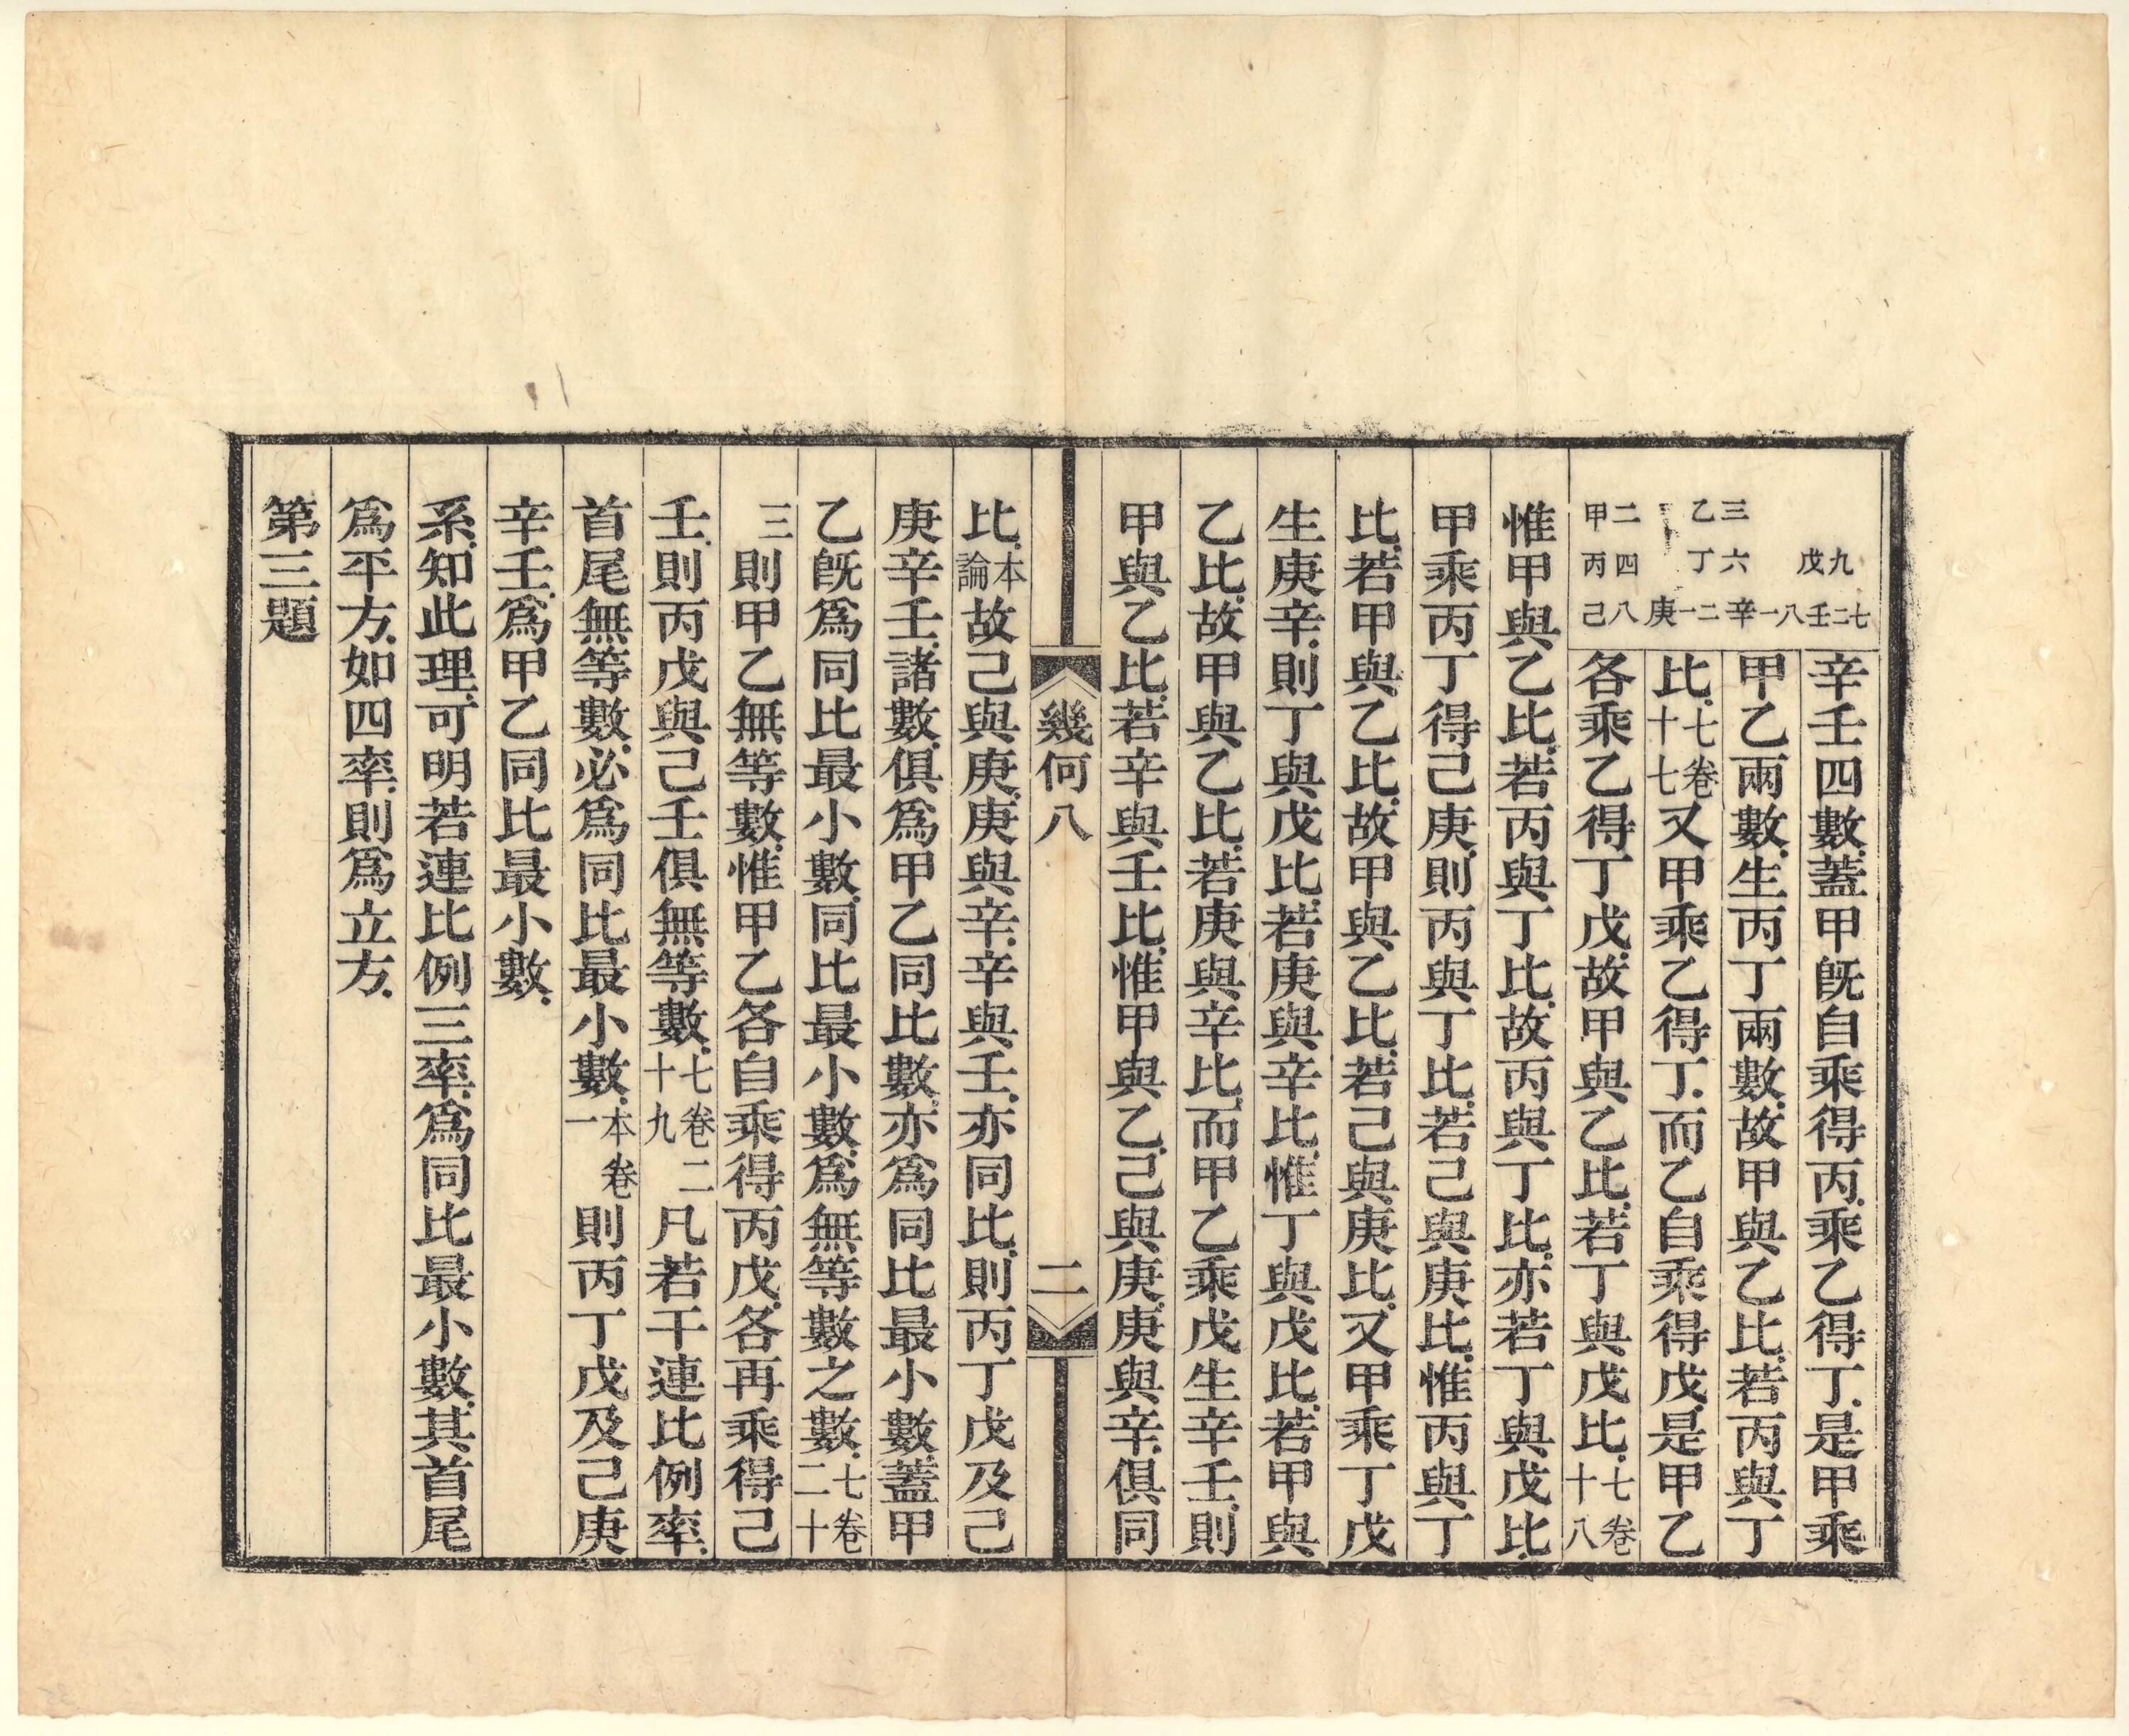 甲二 乙三
丙四 丁六 戊九
己八 庚一二 辛一八 壬二七
辛壬四數、蓋甲旣自乘得丙、乘乙得丁、是甲乘
甲乙兩數、生丙丁兩數、故甲與乙比、若丙與丁
比、七卷十七又甲乘乙得丁、而乙自乘得戊、是甲乙
各乘乙得丁戊、故甲與乙比、若丁與戊比、七卷十八
惟甲與乙比、若丙與丁比、故丙與丁比、亦若丁與戊比、
甲乘丙丁得己庚、則丙與丁比、若己與庚比、惟丙與丁
比、若甲與乙比、故甲與乙比、若己與庚比、又甲乘丁戊
生庚辛、則丁與戊比、若庚與辛比、惟丁與戊比、若甲與
乙比、故甲與乙比、若庚與辛比、而甲乙乘戊生辛壬、則
甲與乙比、若辛與壬比、惟甲與乙、己與庚、庚與辛、俱同
幾何八 二
比、本論故己與庚、庚與辛、辛與壬、亦同比、則丙丁戊及己
庚辛壬、諸數、俱爲甲乙同比數、亦爲同比最小數、蓋甲
乙旣爲同比最小數、同比最小數、爲無等數之數、七卷二十
三則甲乙無等數、惟甲乙各自乘得丙戊、各再乘得己
壬、則丙戊與己壬俱無等數、七卷二十九凡若干連比例率、
首尾無等數、必爲同比最小數、本卷一則丙丁戊及己庚
辛壬、爲甲乙同比最小數、
系、知此理、可明若連比例三率、爲同比最小數、其首尾
爲平方、如四率、則爲立方、
第三題